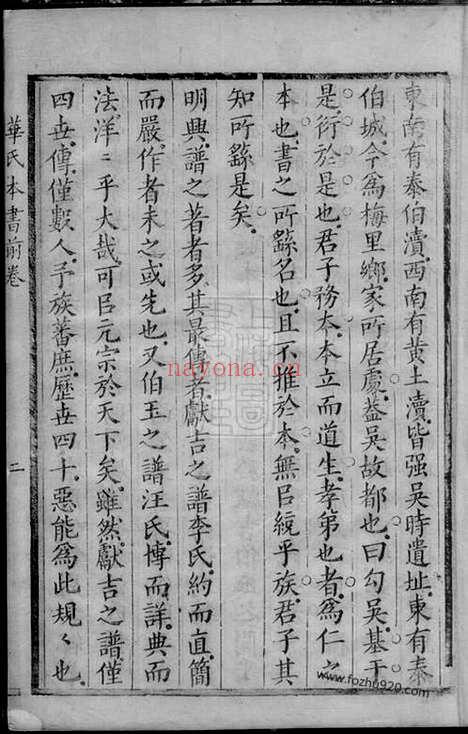 東南有泰伯瀆西南有黄土瀆皆强吴時遺址東有泰
伯城今爲梅里鄉家所居處葢吴故都也曰勾吴基于
是衍於是也君子務本本立而道生孝弟也者爲仁之
本也書之所繇名也且不推於本無㠯統乎族君子其
知所繇是矣
明興譜之著者多其最傳者獻吉之譜李氏約而直簡
而嚴作者未之或先也又伯玉之譜汪氏博而詳典而
法洋〻乎大哉可㠯元宗於天下矣雖然獻吉之譜僅
四世傳僅數人予族蕃庶歷世四十惡能爲此規〻也
華氏本書前卷
二
nayona.cn
www.fozhu920.com